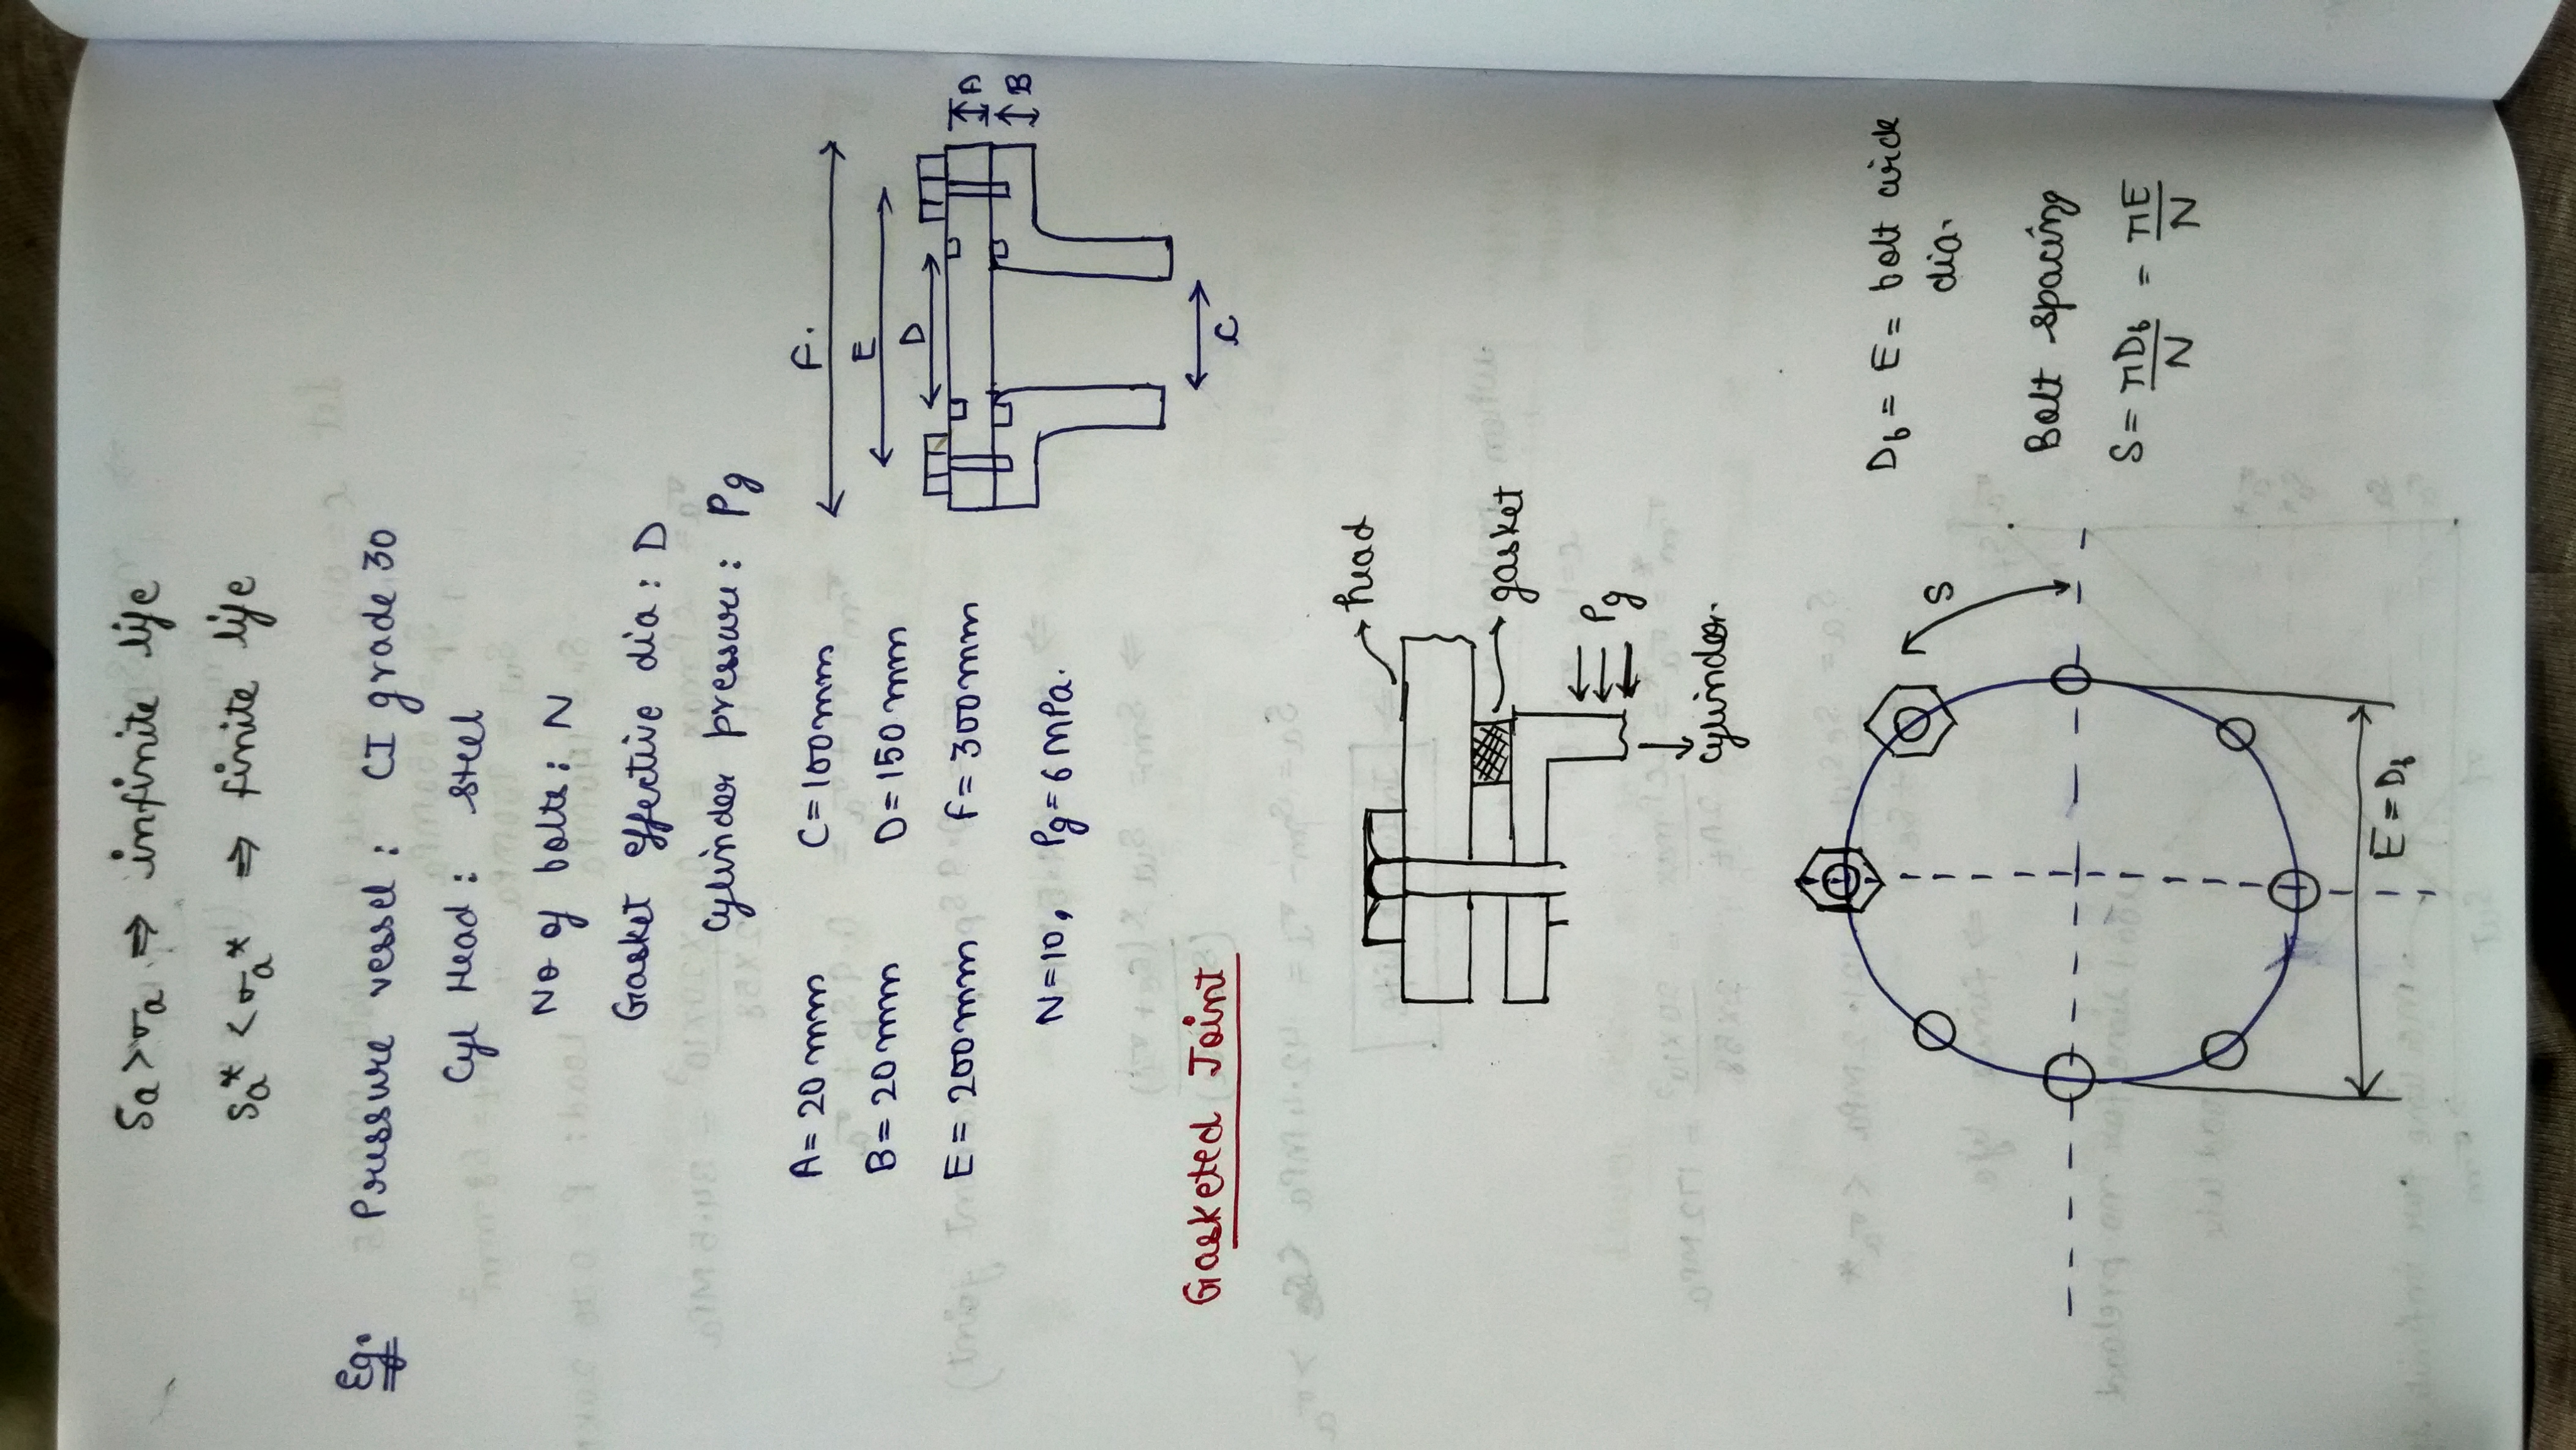 Sa > σa ⇒ infinite life
Sa* < σa* ⇒ finite life
Eg. Pressure vessel : CI grade 30
Cyl Head : steel
No of bolts : N
Gasket effective dia : D
Cylinder pressure : Pg
A = 20 mm C = 100 mm
B = 20 mm D = 150 mm
E = 200 mm F = 300 mm
N = 10, Pg = 6 MPa.
F.
E
D
A
B
C
Gasketed Joint
head
gasket
Pg
cylinder.
S
Db = E = bolt circle
dia.
Bolt spacing
S = πDb/N = πE/N
E = Db